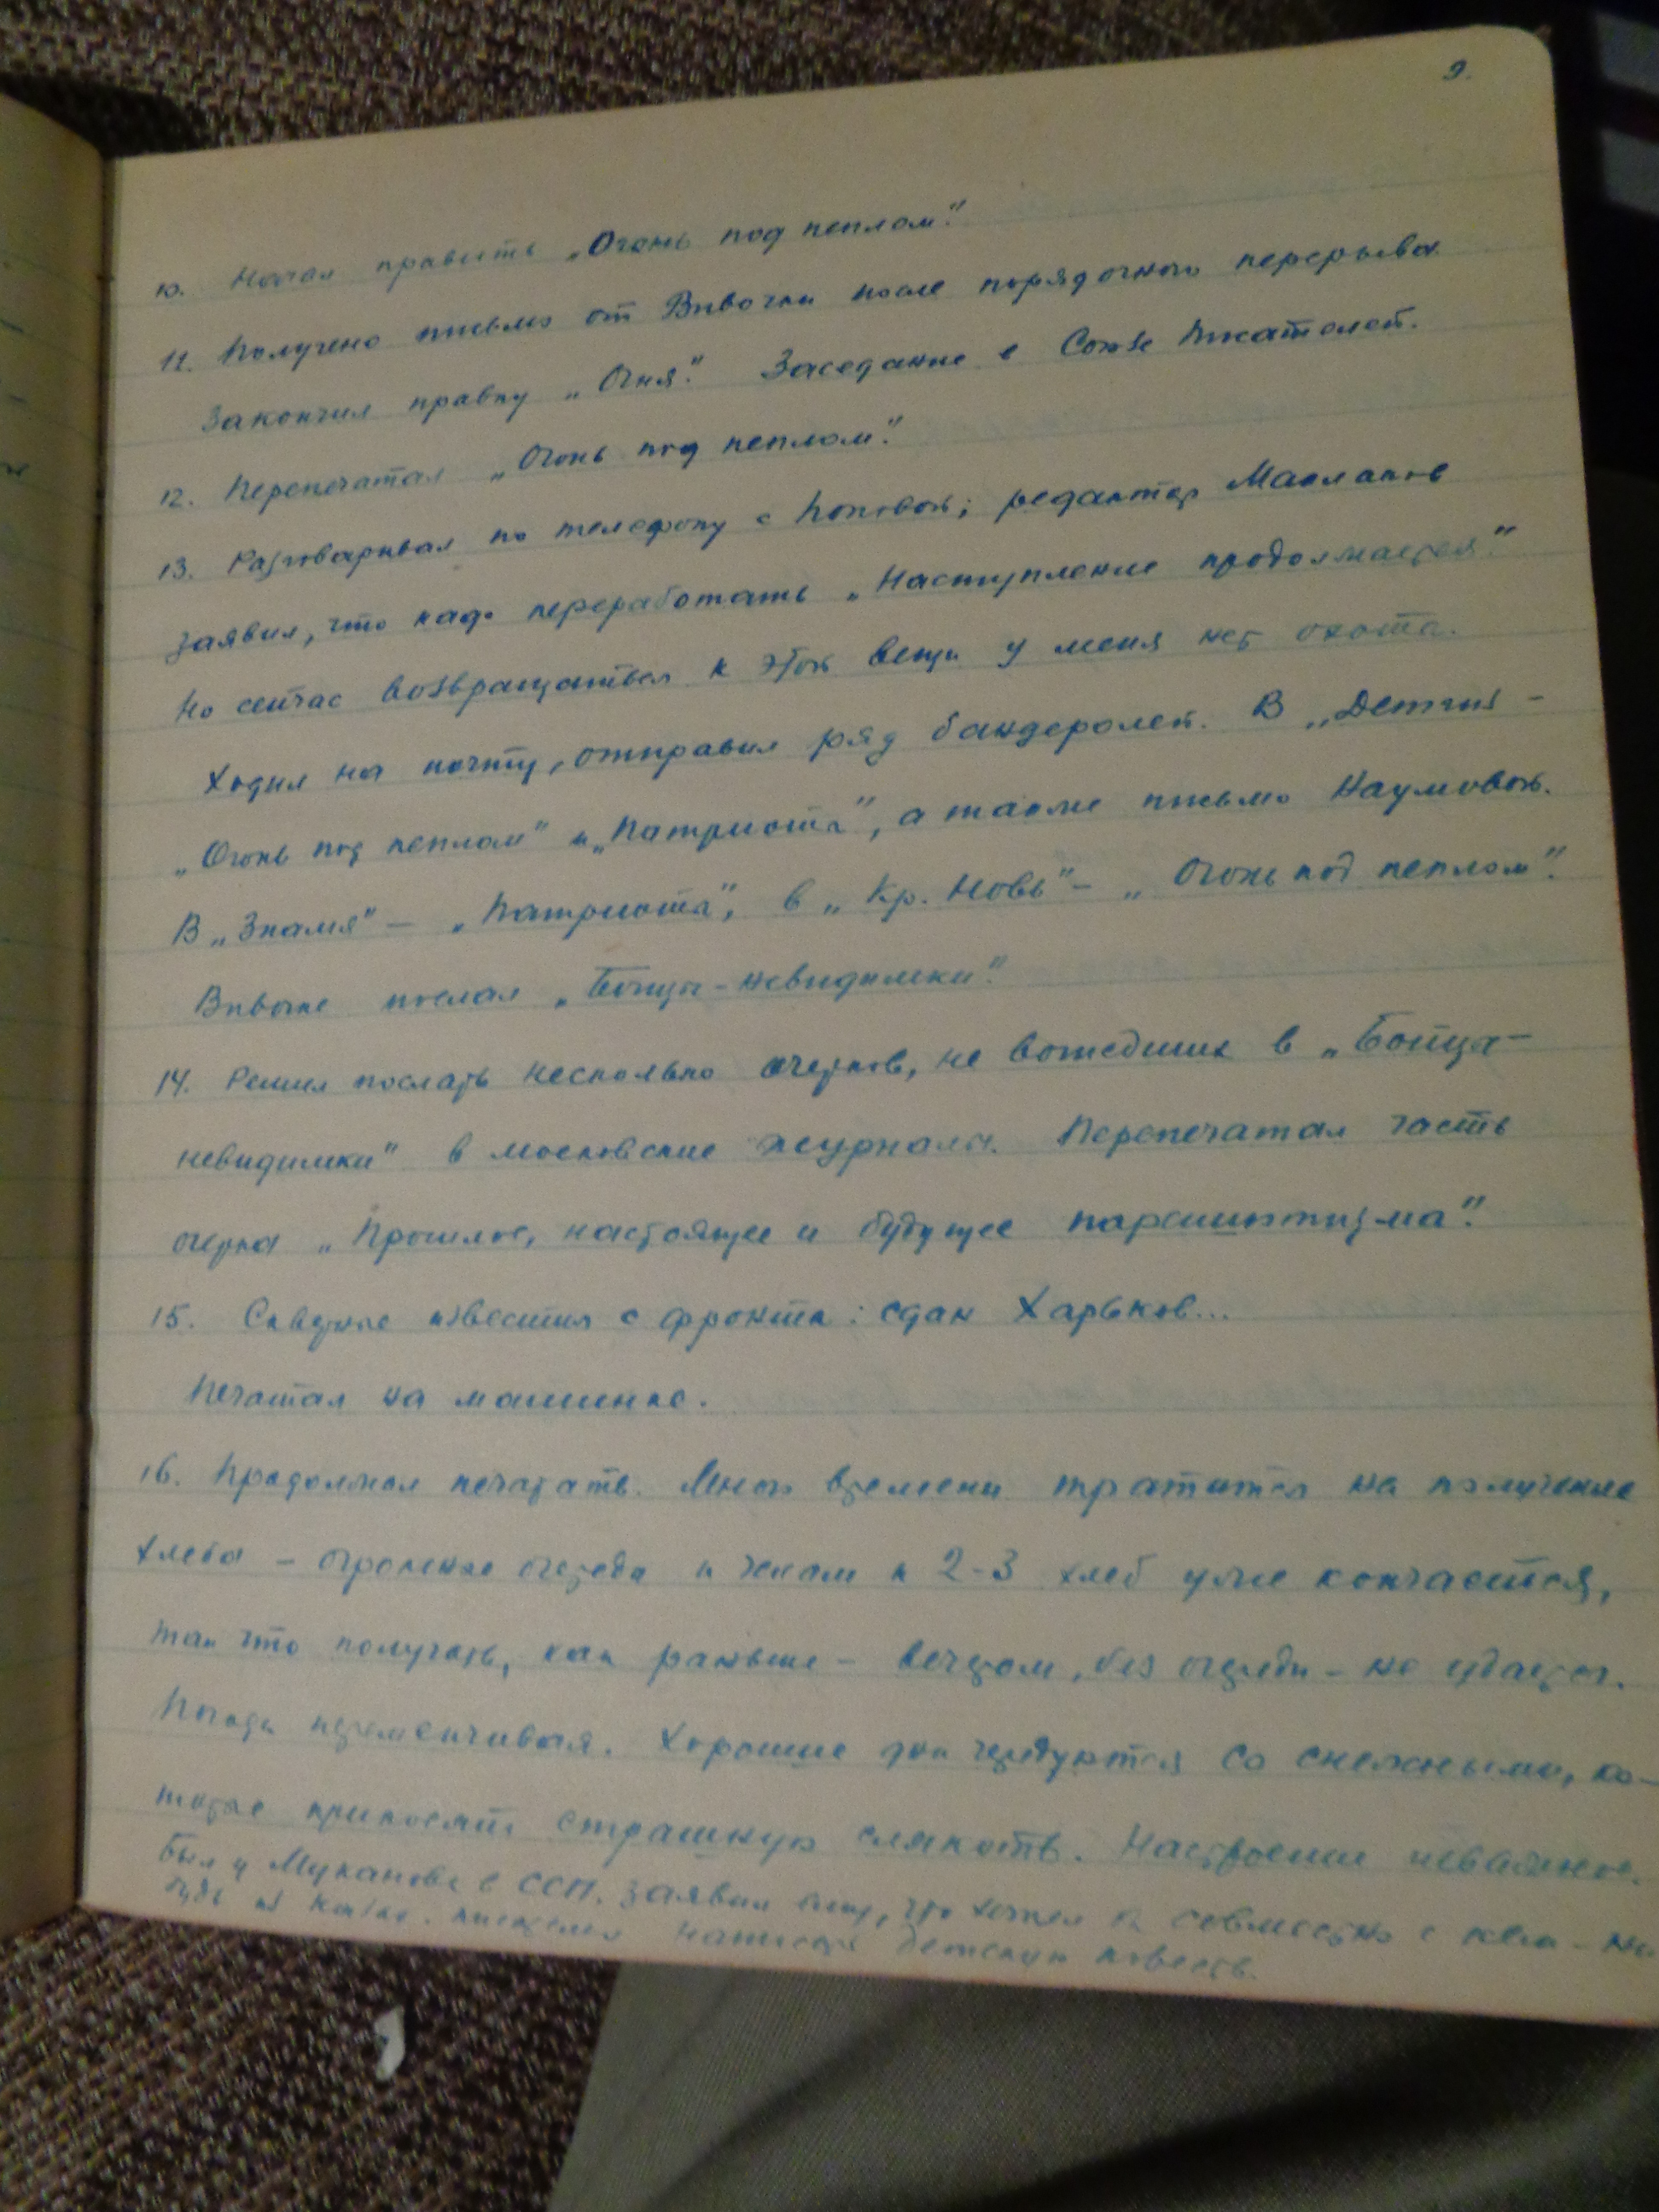 9.
10. Начал править „Огонь под пеплом".
11. Получено письмо от Вивочки после порядочного перерыва.
Закончил правку „Огня". Заседание в Союзе Писателей.
12. Перепечатал „Огонь под пеплом".
13. Разговаривал по телефону с Поповой; редактор Маклаков
заявил, что надо переработать „Наступление продолжается".
Но сейчас возвращаться к этой вещи у меня нет охоты.
Ходил на почту, отправил ряд бандеролей. В „Детгиз –
„Огонь под пеплом" и „Патриота", а также письмо Наумовой.
В „Знамя" – „Патриота", в „Кр. Новь" – „Огонь под пеплом".
послал „Бойцы-невидимки".
14. Решил послать несколько очерков, не вошедших в „Бойца-
невидимки" в московские журналы. Перепечатал часть
очерка „Прошлое, настоящее и будущее парашютизма".
15. Скверные известия с фронта: сдан Харьков...
Печатал на машинке.
16. Продолжал печатать. Много времени тратится на получение
хлеба – огромные очереди и часам к 2-3 хлеб уже кончается,
так что получать, как раньше – вечером, без очереди – не удается.
Погода переменчивая. Хорошие дни чередуются со снежными, ко-
торые приносят страшную слякоть. Настроение неважное.
Был у Муканова в ССП. Заявил ему, что хотел бы совместно с кем-ни-
будь из писателей написать детскую повесть.